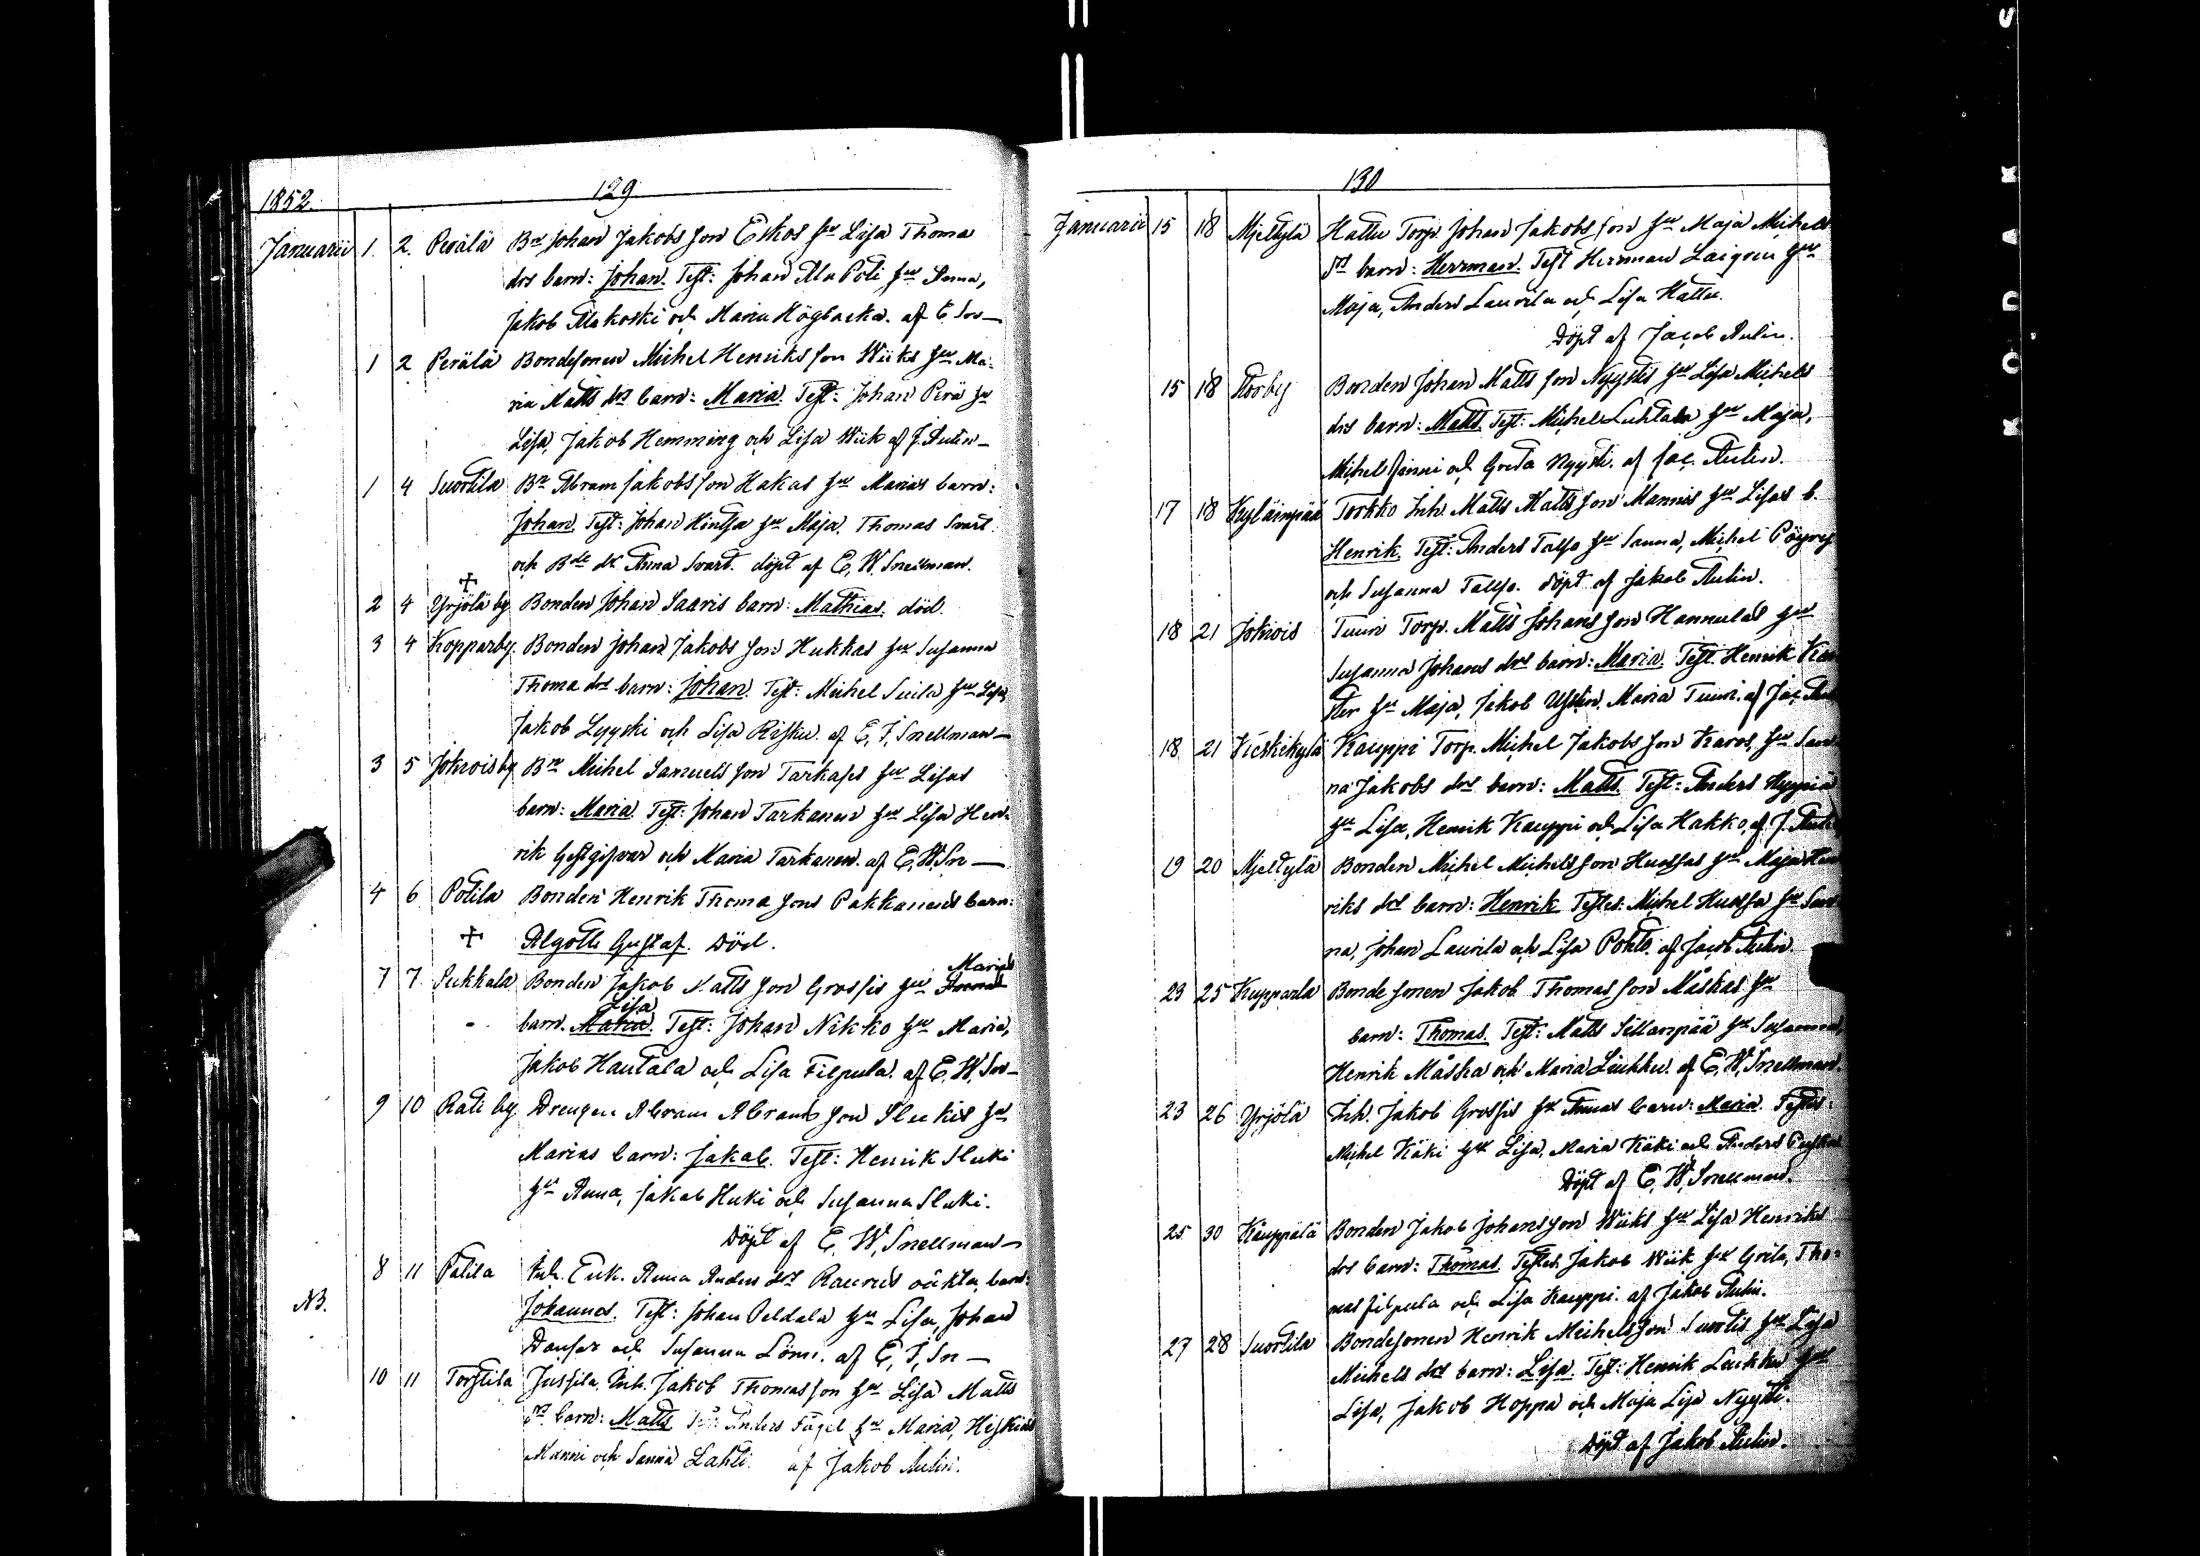 1852.
129.
Januarii 1 2. Perälä Br Johan Jakobs son Eskos hu Lisa Thoma
drs barn: Johan. Test: Johan Ala Poti hu Anna,
Jakob Alakoski och Maria Högbacka. af E. Sn—
1 2 Perälä Bondesonen Michel Henriks son Wiiks hu Ma-
ria Matts drs barn: Maria. Test: Johan Perä hu
Lisa, Jakob Hemming och Lisa Wiik af J. Aulin—
1 4 Suortila Br Abram Jakobs son Hakas hu Marias barn:
Johan. Test: Johan Hintsa hu Maja, Thomas Svart
och Bde dr Anna Svart. döpt af E. W. Snellman.
2 4 Yrjölä by Bonden Johan Saaris barn: Mathias. död.
3 4 Kopparby. Bonden Johan Jakobs son Hukkas hu Susanna
Thoma drs barn: Johan. Test: Michel Sicila hu Lisa,
Jakob Lyyski och Lisa Risku. af E. J. Snellman—
3 5 Jokvois by Br Michel Samuels son Tarkases hu Lisas
barn: Maria. Test: Johan Tarkanen hu Lisa Hen-
rik Gästgifvar och Maria Tarkanen. af E. W. Sn—
4 6 Potila Bonden Henrik Thoma sons Pakkanens barn:
Algoth Gustaf. Död.
7 7 Sukkala Bonden Jakob Matts son Grossis hu Marias
barn. Lisa Test: Johan Nikko hu Maria,
Jakob Hautala och Lisa Filpula. af E. W. Sn—
9 10 Rati by. Drengen Abram Abrams son Slukis hu
Marias barn: Jakob. Test: Henrik Sluki
hu Anna, Jakob Huki och Susanna Sluki.
Döpt af E. W. Snellman—
NB. 8 11 Potila Inh. Enk. Anna Anders drs Raurus oäkta barn:
Johannes. Test: Johan Peldala hu Lisa, Johan
Dansar och Susanna Löns. af E. J. Sn—
10 11 Torstila Jussila Inh. Jakob Thomas son hu Lisa Matts
drs barn: Matts Test: Anders Fågel hu Maria, Hiskias
Manni och Sanna Lahti. af Jakob Aulin.
130
Januarii 15 18 Mjeltylä Hattu Torp. Johan Jakobs son hu Maja Michels
drs barn: Herrman. Test Herrman Laigren hu
Maja, Anders Laurila och Lisa Hattu.
Döpt af Jacob Aulin.
15 18 Storby Bonden Johan Matts son Nyystis hu Lisa Michels
drs barn: Matts. Test: Michel Luhtala hu Maja,
Michel Finni och Greta Nyysti. af Jac. Aulin.
17 18 Kyläinpää Torkko Inh. Matts Matts son Mannis hu Lisas b.
Henrik. Test: Anders Talso hu Sanna, Michel
och Susanna Talso. döpt af Jakob Aulin.
18 21 Jokvois Tuuri Torp. Matts Johans son Hannulas hu
Susanna Johans drs barn: Maria. Test. Henrik
hu Maja, Jakob Maria Tuuri. af Jac.
18 21 Kieskikylä Kauppi Torp. Michel Jakobs son Karos, hu San-
na Jakobs drs barn: Matts. Test: Anders Hyypiä
hu Lisa, Henrik Kauppi och Lisa Hakko, af J.
19 20 Mjeltylä Bonden Michel Michels son Huossas hu Maja Hen
riks drs barn: Henrik Testes: Michel Huossa hu San-
na, Johan Laurila och Lisa Pohto. af Jacob Aulin.
23 25 Kupparla Bonde sonen Jakob Thomas son Måskas hu
barn: Thomas. Test: Matts Sillanpää hu Susanna,
Henrik Måska och Maria Liukku. af E. W. Snellman.
23 26 Yrjölä Inh. Jakob Grossis hu Annas barn: Maria. Testes:
Michel Käki hu Lisa, Maria Käki och Anders
Döpt af E. W. Snellman.
25 30 Kauppälä Bonden Jakob Johans son Wiiks hu Lisa Henriks
drs barn: Thomas. Testes. Jakob Wiik hu Greta, Tho-
mas filpula och Lisa Kauppi. af Jakob Aulin.
27 28 Suortila Bondesonen Henrik Michels son Suortis hu Lisa
Michels drs barn: Lisa. Test: Henrik Liukku hu
Lisa, Jakob Hoppa och Maja Lisa Nyysti.
Döpt af Jakob Aulin.
KODAK S